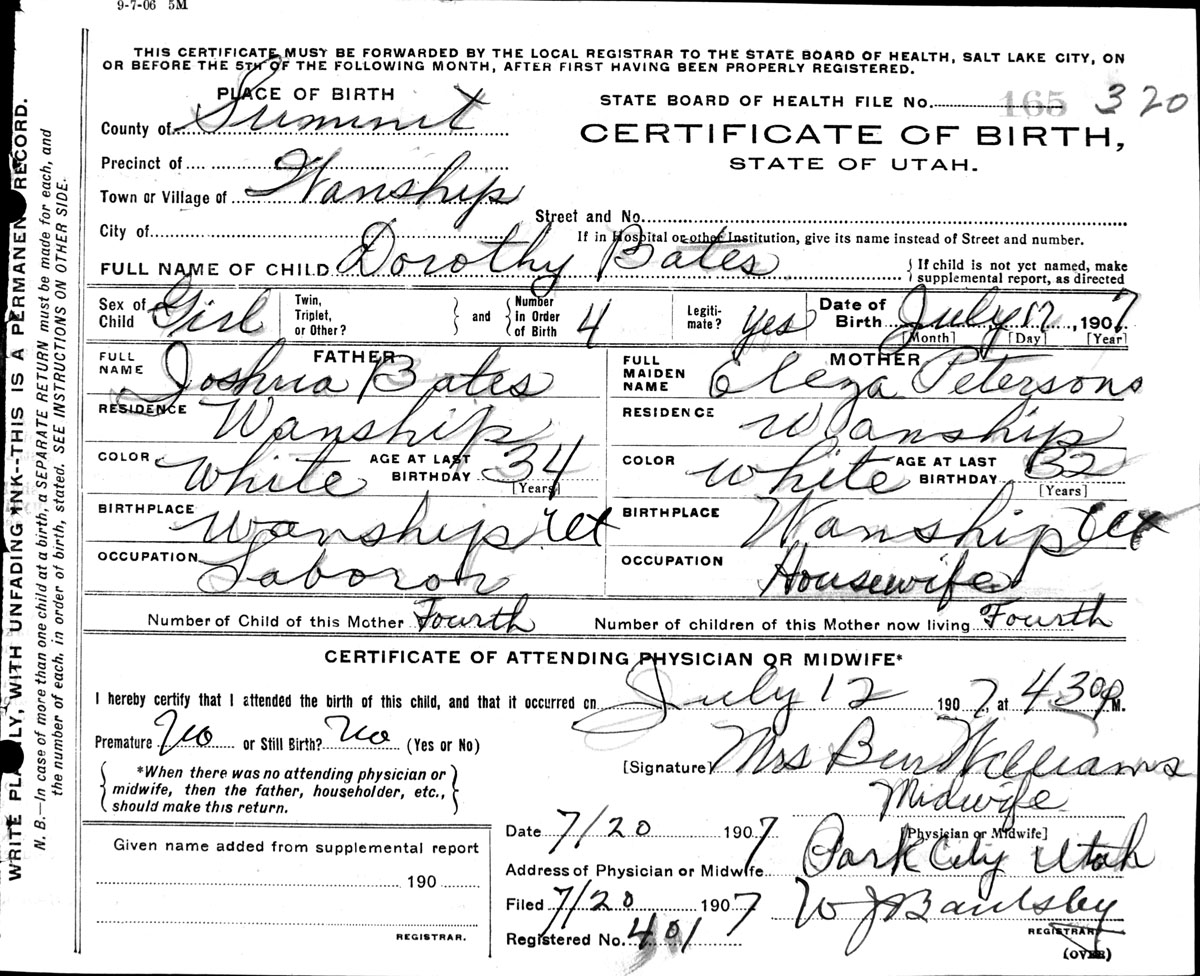 9-7-06 5M
THIS CERTIFICATE MUST BE FORWARDED BY THE LOCAL REGISTRAR TO THE STATE BOARD OF HEALTH, SALT LAKE CITY, ON
OR BEFORE THE 5TH OF THE FOLLOWING MONTH, AFTER FIRST HAVING BEEN PROPERLY REGISTERED.
PLACE OF BIRTH
STATE BOARD OF HEALTH FILE No. 165 320
County of Summit
CERTIFICATE OF BIRTH,
STATE OF UTAH.
Precinct of
Town or Village of Wanship
Street and No.
City of
If in Hospital or other Institution, give its name instead of Street and number.
FULL NAME OF CHILD Dorothy Bates
{If child is not yet named, make
supplemental report, as directed
Sex of Child Girl
Twin, Triplet, or Other? } and {Number in Order of Birth 4
Legiti-mate? yes
Date of Birth July 12, 1907
[Month] [Day] [Year]
FATHER
FULL NAME Joshua Bates
RESIDENCE Wanship
COLOR White AGE AT LAST BIRTHDAY 34
[Years]
BIRTHPLACE Wanship Ut
OCCUPATION Laboror
MOTHER
FULL MAIDEN NAME Eleza Petersons
RESIDENCE Wanship
COLOR White AGE AT LAST BIRTHDAY 32
[Years]
BIRTHPLACE Wanship Ut
OCCUPATION Housewife
Number of Child of this Mother Fourth
Number of children of this Mother now living Fourth
CERTIFICATE OF ATTENDING PHYSICIAN OR MIDWIFE*
I hereby certify that I attended the birth of this child, and that it occurred on July 12 1907, at 430 P.M.
Premature No or Still Birth? No (Yes or No)
[Signature] Mrs Williams
Midwife
[Physician or Midwife]
{*When there was no attending physician or
midwife, then the father, householder, etc.,
should make this return.}
Date 7/20 1907
Address of Physician or Midwife Park City Utah
Given name added from supplemental report
190
REGISTRAR.
Filed 7/20 1907 W J
REGISTRAR
Registered No. 401
(OVER)
WRITE PLAINLY, WITH UNFADING INK--THIS IS A PERMANENT RECORD.
N. B.—In case of more than one child at a birth, a SEPARATE RETURN must be made for each, and
the number of each, in order of birth, stated. SEE INSTRUCTIONS ON OTHER SIDE.